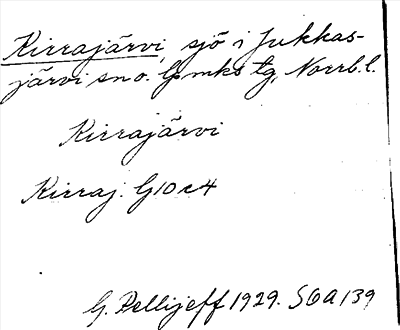 Kirrajärvi, sjö i Jukkas-
järvi sn o. lpmks tg, Norrb. l.
Kirrajärvi
Kirraj. G10 c4
G. Pellijeff 1929. SOA 139